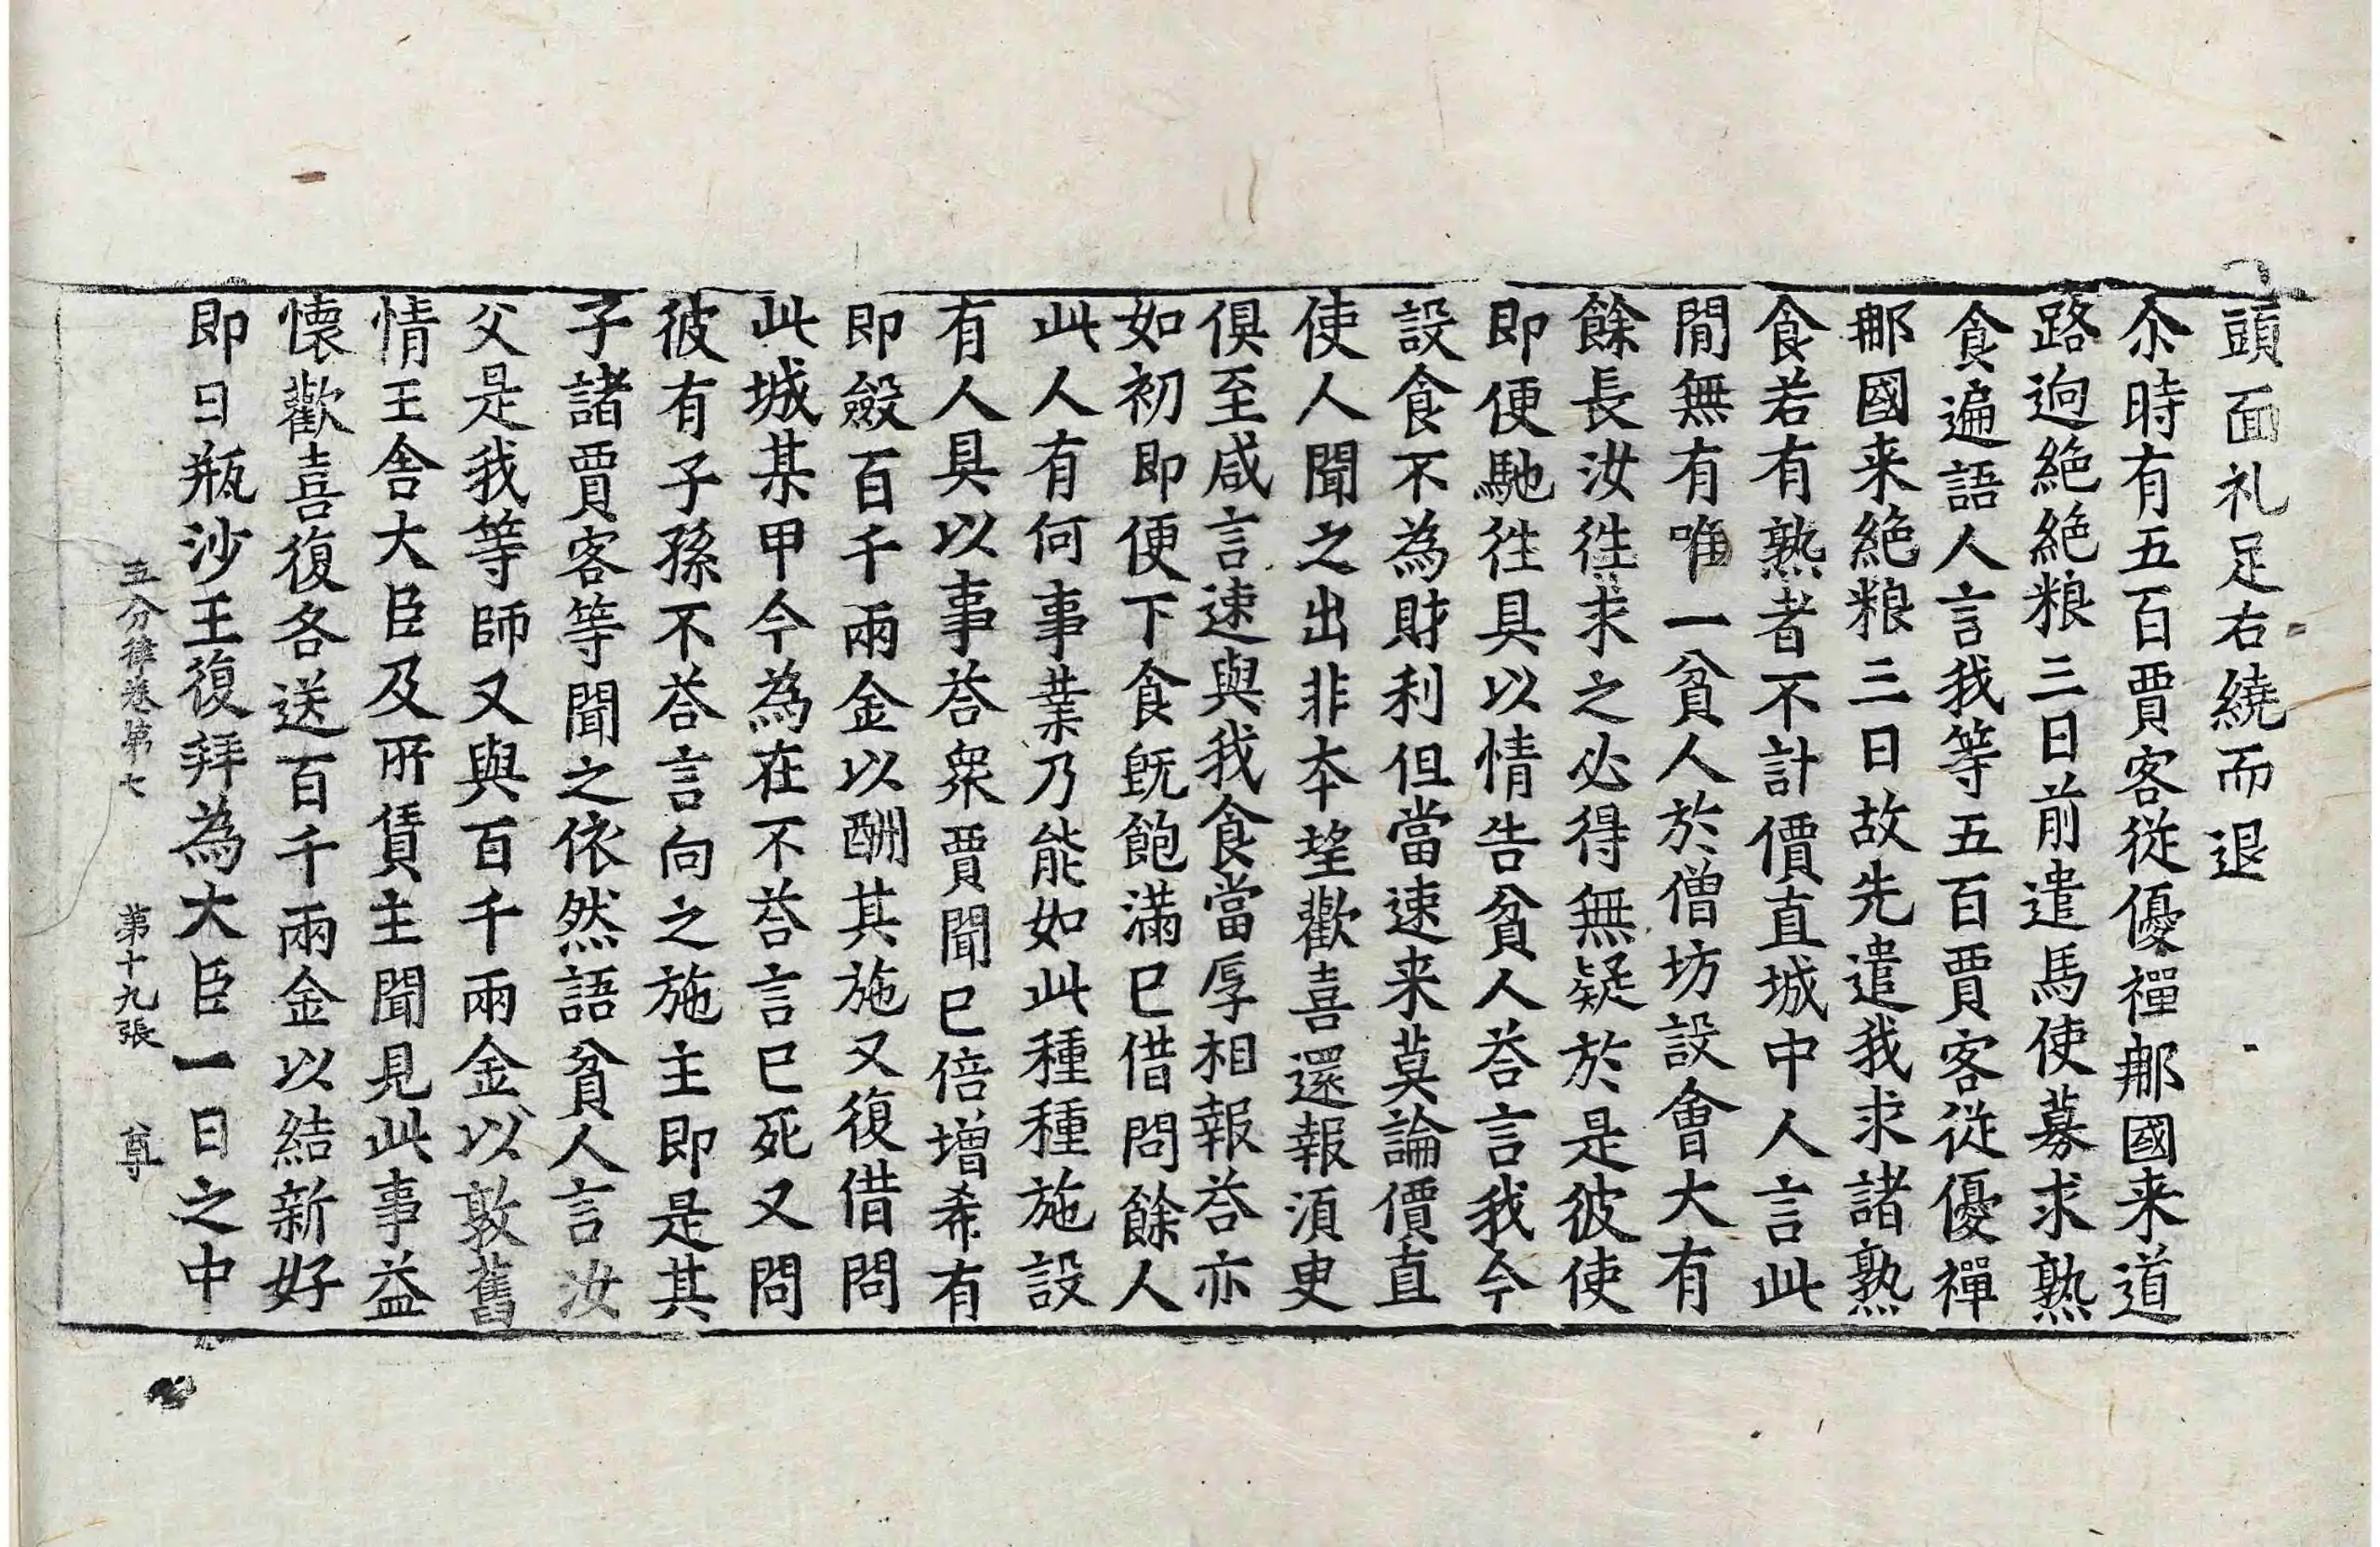 頭面礼足右繞而退
尒時有五百賈客從優禪那國来道
路逈絶絶粮三日前遣馬使募求熟
食遍語人言我等五百賈客從優禪
那國来絶粮三日故先遣我求諸熟
食若有熟者不計價直城中人言此
閒無有唯一貧人於僧坊設會大有
餘長汝徃求之必得無疑於是彼使
即便馳徃具以情告貧人荅言我今
設食不為財利但當速来莫論價直
使人聞之出非本望歡喜還報湏臾
俱至咸言速與我食當厚相報荅亦
如初即便下食旣飽滿已借問餘人
此人有何事業乃能如此種種施設
有人具以事荅衆賈聞已倍增希有
即斂百千兩金以酬其施又復借問
此城某甲今為在不荅言已死又問
彼有子孫不荅言向之施主即是其
子諸賈客等聞之依然語貧人言汝
父是我等師又與百千兩金以敦舊
情王舍大臣及所賃主聞見此事益
懷歡喜復各送百千兩金以結新好
即日瓶沙王復拜為大臣一日之中
五分律卷第七 第十九張 尊